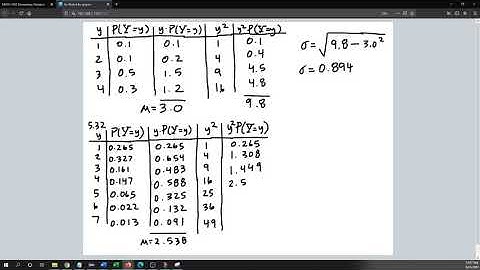 y P(Y=y) y·P(Y=y) y² y²P(Y=y)
1 0.1 0.1 1 0.1
2 0.1 0.2 4 0.4
3 0.5 1.5 9 4.5
4 0.3 1.2 16 4.8
μ=3.0 9.8
σ=√9.8-3.0²
σ=0.894
5.32
y P(Y=y) y·P(Y=y) y² y²P(Y=y)
1 0.265 0.265 1 0.265
2 0.327 0.654 4 1.308
3 0.161 0.483 9 1.449
4 0.147 0.588 16 2.5
5 0.065 0.325 25
6 0.022 0.132 36
7 0.013 0.091 49
μ=2.538